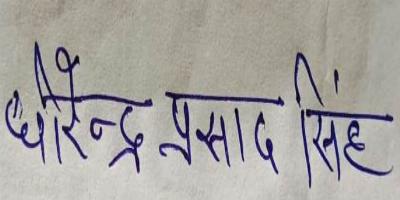 धीरेन्द्र प्रसाद सिंह